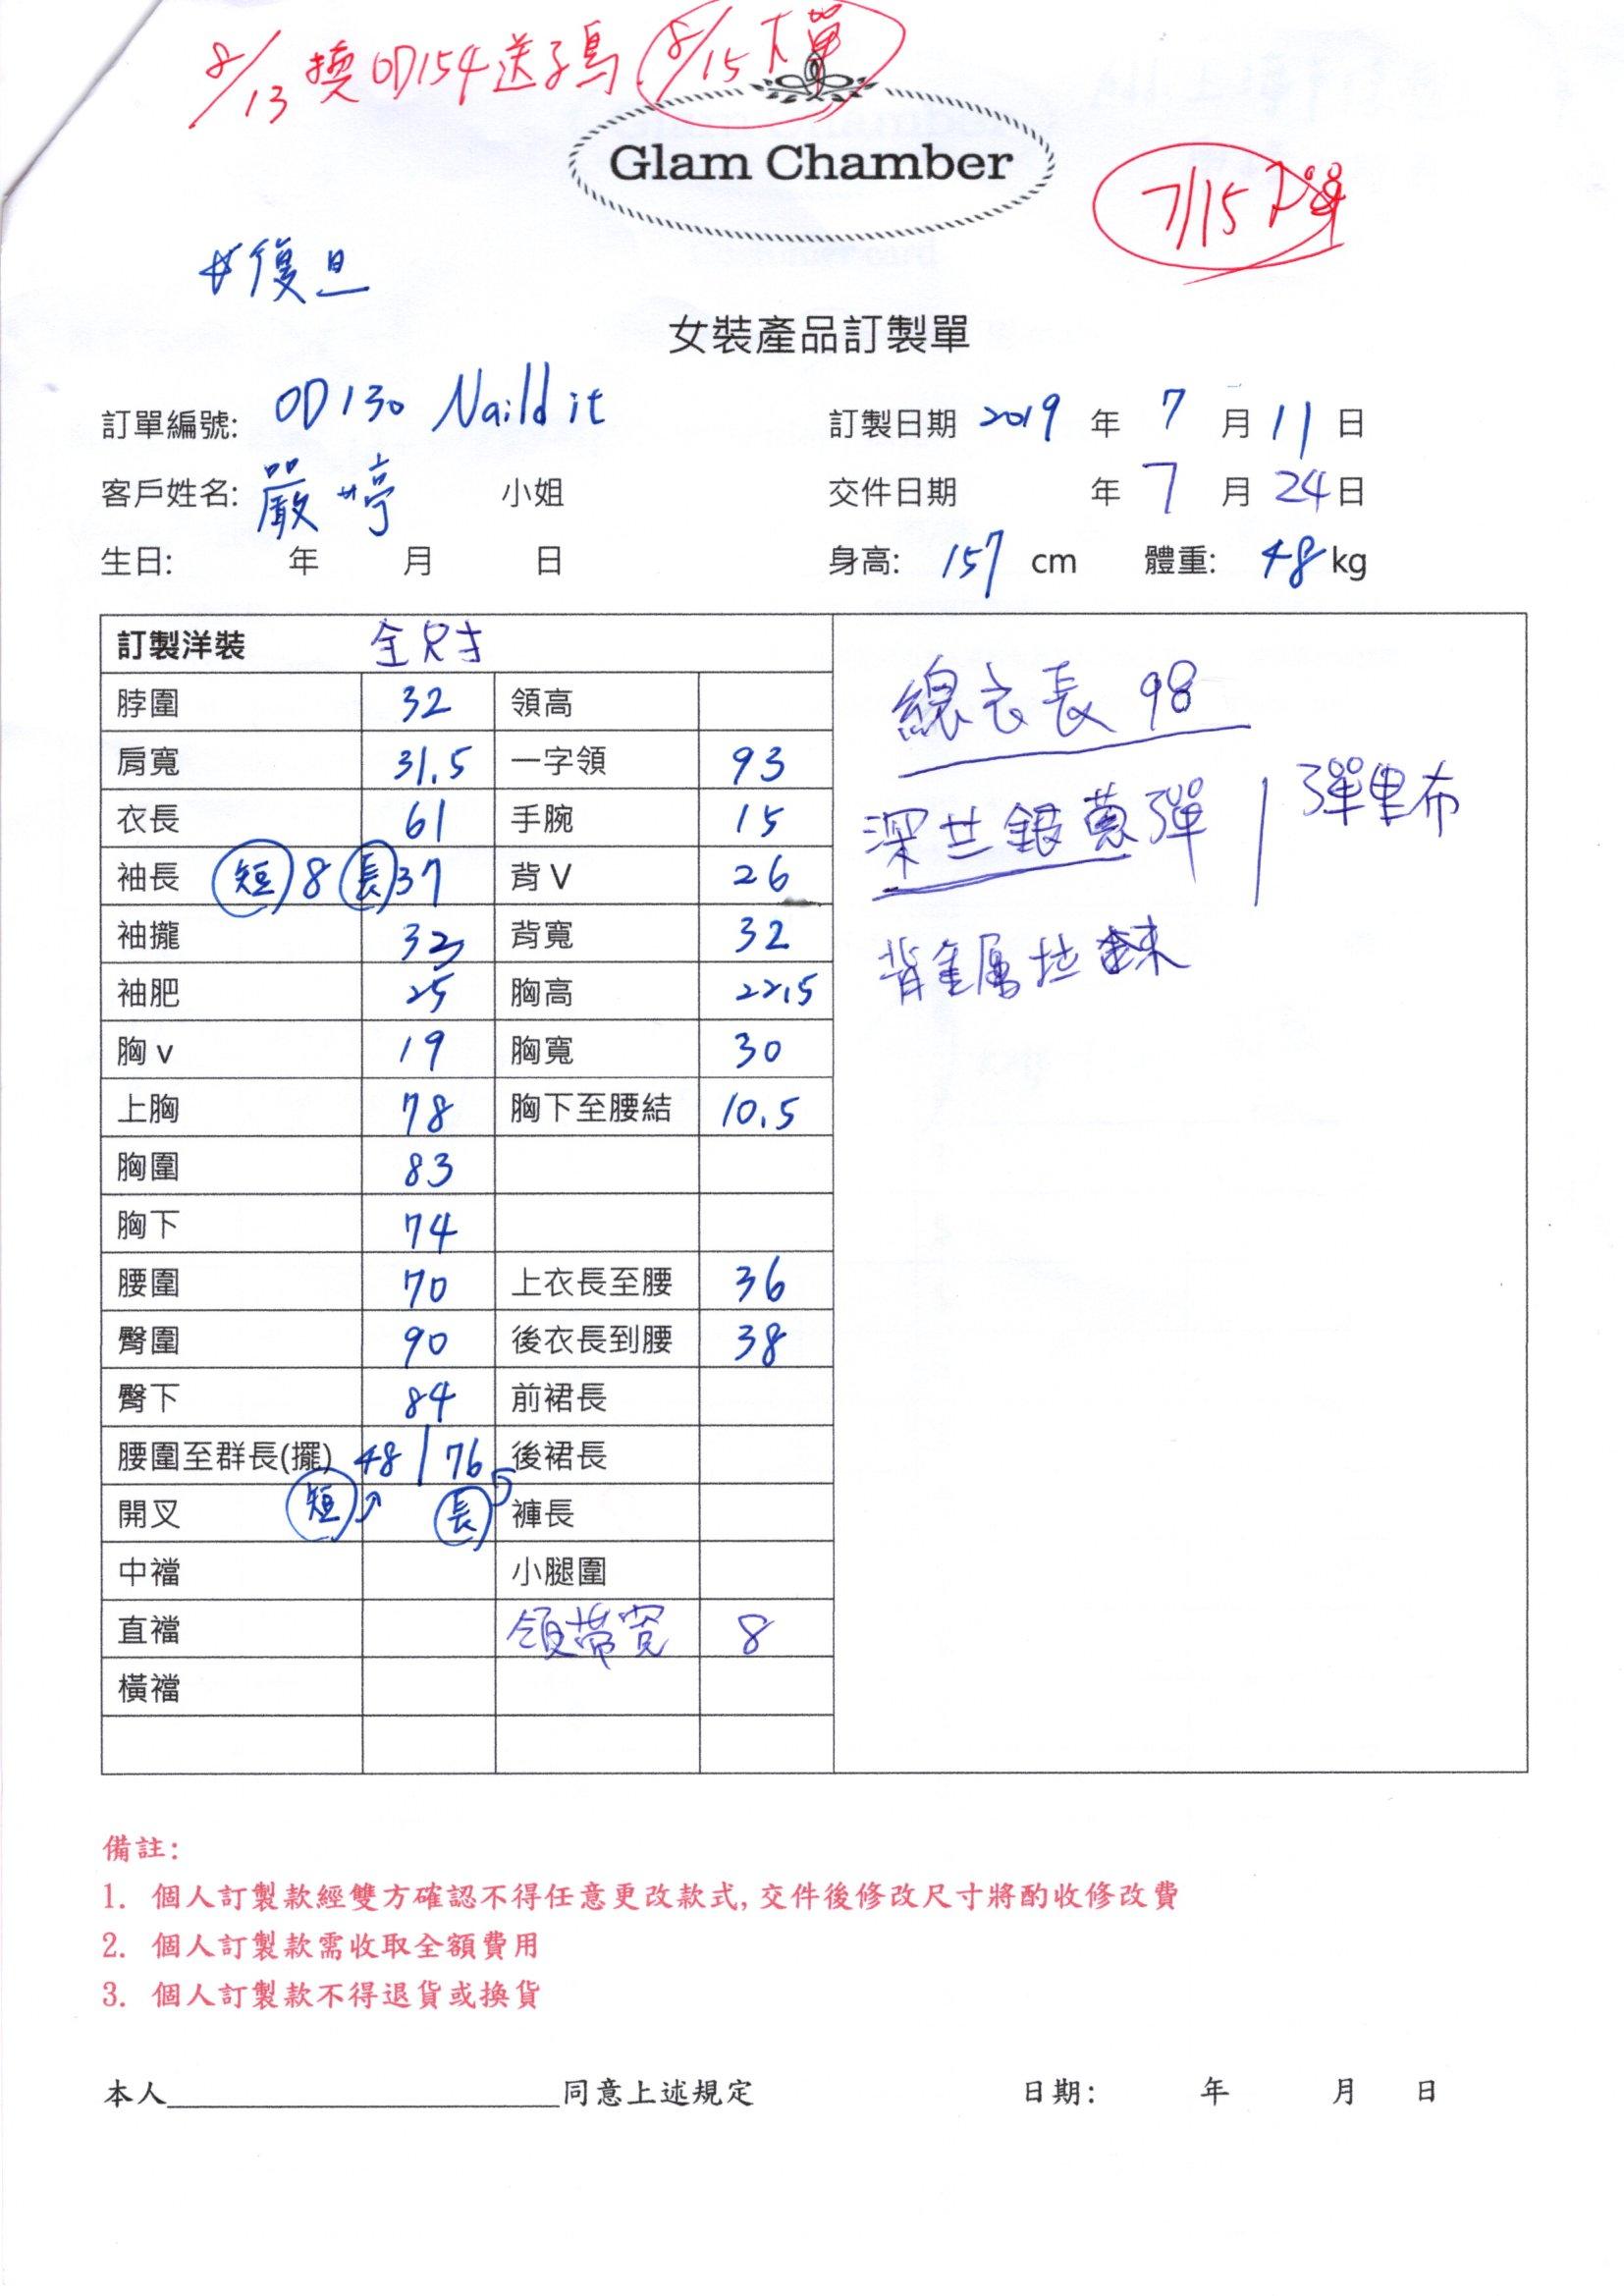 8/13 換OD154送子鳥 8/15下單
Glam Chamber
7/15下單
#復旦
女裝產品訂製單
訂單編號: OD130 Naild it 訂製日期 2019 年 7 月 11 日
客戶姓名: 嚴婷 小姐 交件日期 年 7 月 24 日
生日: 年 月 日 身高: 157 cm 體重: 48 kg
訂製洋裝 全尺寸
脖圍 32 領高
肩寬 31.5 一字領 93
衣長 61 手腕 15
袖長 短 8 長 37 背 V 26
袖攏 32 背寬 32
袖肥 25 胸高 22.5
胸 v 19 胸寬 30
上胸 78 胸下至腰結 10.5
胸圍 83
胸下 74
腰圍 70 上衣長至腰 36
臀圍 90 後衣長到腰 38
臀下 84 前裙長
腰圍至群長(擺) 48 / 76 後裙長
開叉 短 長 褲長
中襠 小腿圍
直襠 領帶寬 8
橫襠
總衣長 98
深芷銀蔥彈 / 彈里布
背金属拉鍊
備註:
1. 個人訂製款經雙方確認不得任意更改款式, 交件後修改尺寸將酌收修改費
2. 個人訂製款需收取全額費用
3. 個人訂製款不得退貨或換貨
本人____________________同意上述規定 日期: 年 月 日